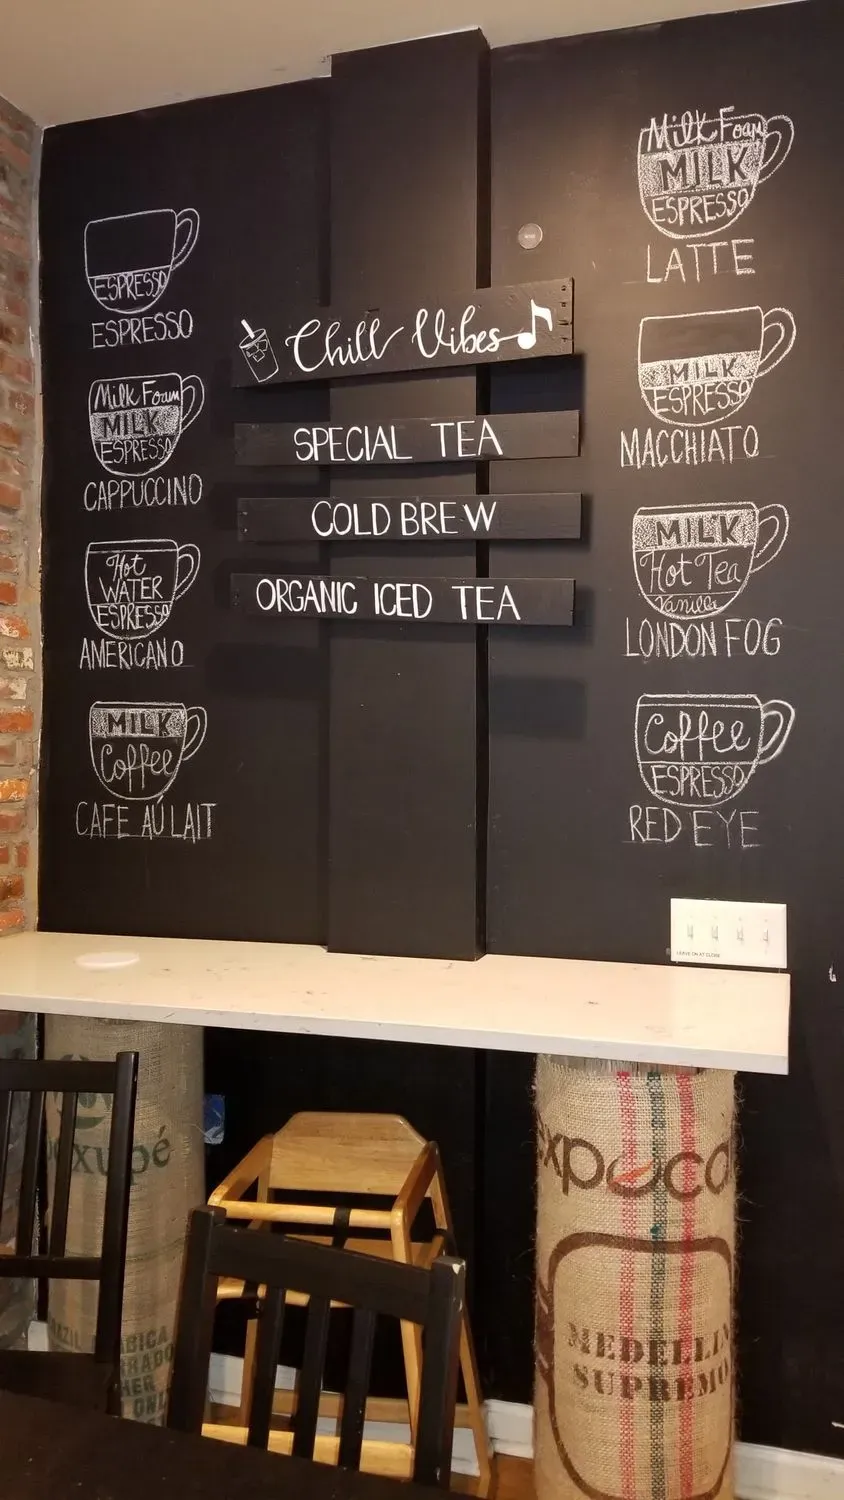 ESPRESSO
ESPRESSO
Milk Foam
MILK
ESPRESSO
CAPPUCCINO
Hot
WATER
ESPRESSO
AMERICANO
MILK
Coffee
CAFE AÚ LAIT
Chill Vibes
SPECIAL TEA
COLD BREW
ORGANIC ICED TEA
Milk Foam
MILK
ESPRESSO
LATTE
MILK
ESPRESSO
MACCHIATO
MILK
Hot Tea
Vanilla
LONDON FOG
Coffee
ESPRESSO
RED EYE
LEAVE ON AT CLOSE
xupé
expoca
MEDELLIN
SUPREMO